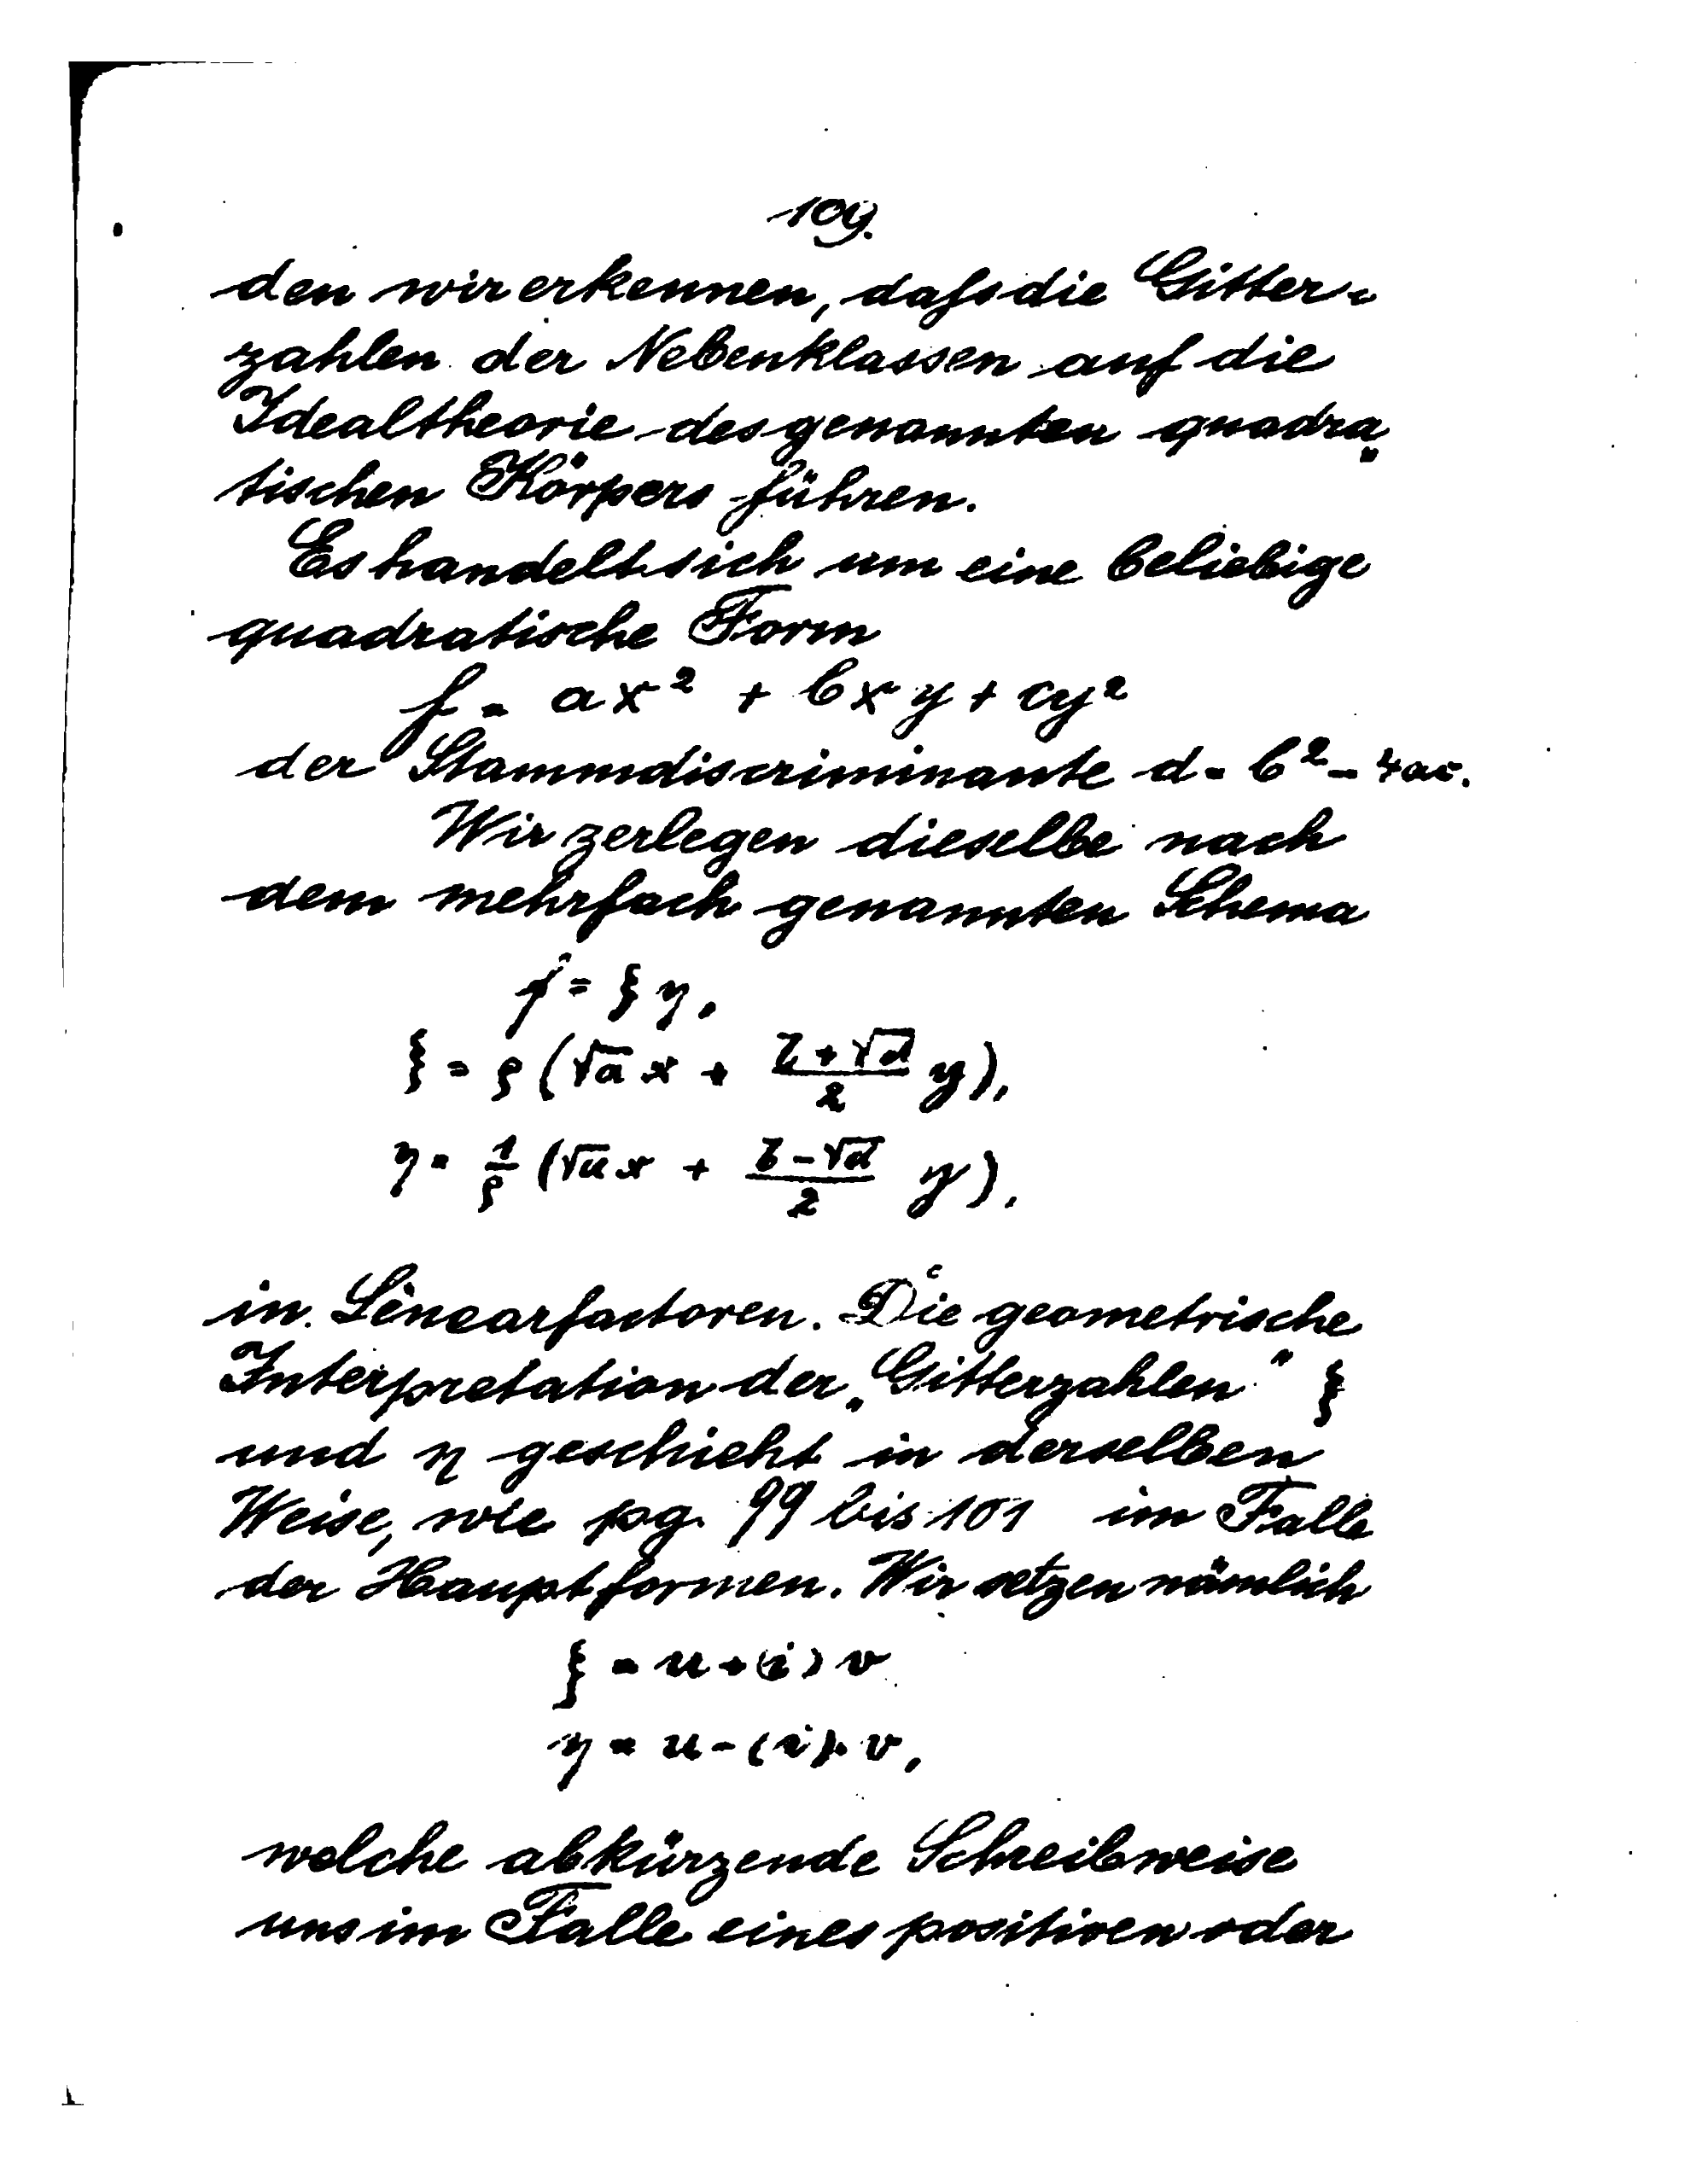 109.
den wir erkennen, dafs die Gitter-
zahlen der Nebenklassen auf die
Idealtheorie des genannten quadra„
tischen Körpers führen.
Es handelt sich um eine beliebige
quadratische Form
f = ax² + bxy + cy²
der Stammdiscriminante d = b² - 4ac.
Wir zerlegen dieselbe nach
dem mehrfach genannten Schema
f = ξη,
ξ = ρ(√a x + (b + √d)/2 y),
η = 1/ρ (√a x + (b - √d)/2 y),
in Linearfactoren. Die geometrische
Interpretation der „Gitterzahlen" ξ
und η geschieht in derselben
Weise, wie pg. 99 bis 101 im Falle
der Hauptformen. Wir setzen nämlich
ξ = u + (i) v
η = u - (i) v,
welche abkürzende Schreibweise
uns im Falle eines positiven oder